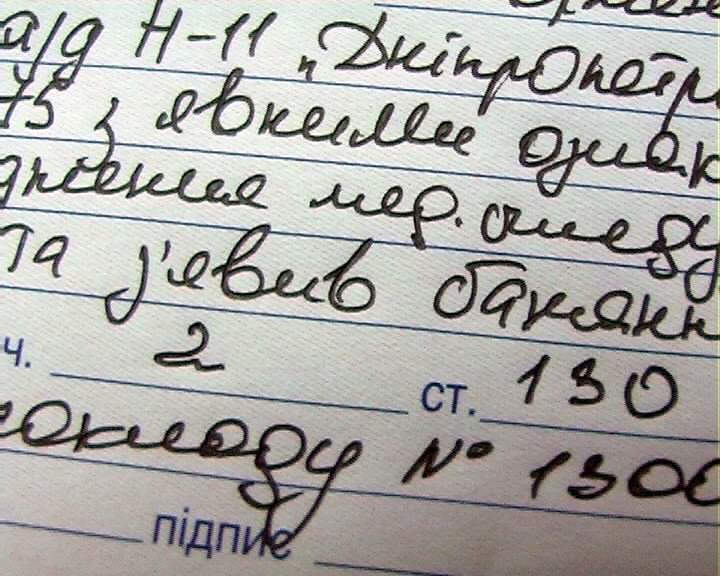 а/д Н-11 „Дніпропетр
75 з явними ознак
дження мед. огляду
та з'явив бажанн
ч. 2 ст. 130
токолоду № 1300
підпис